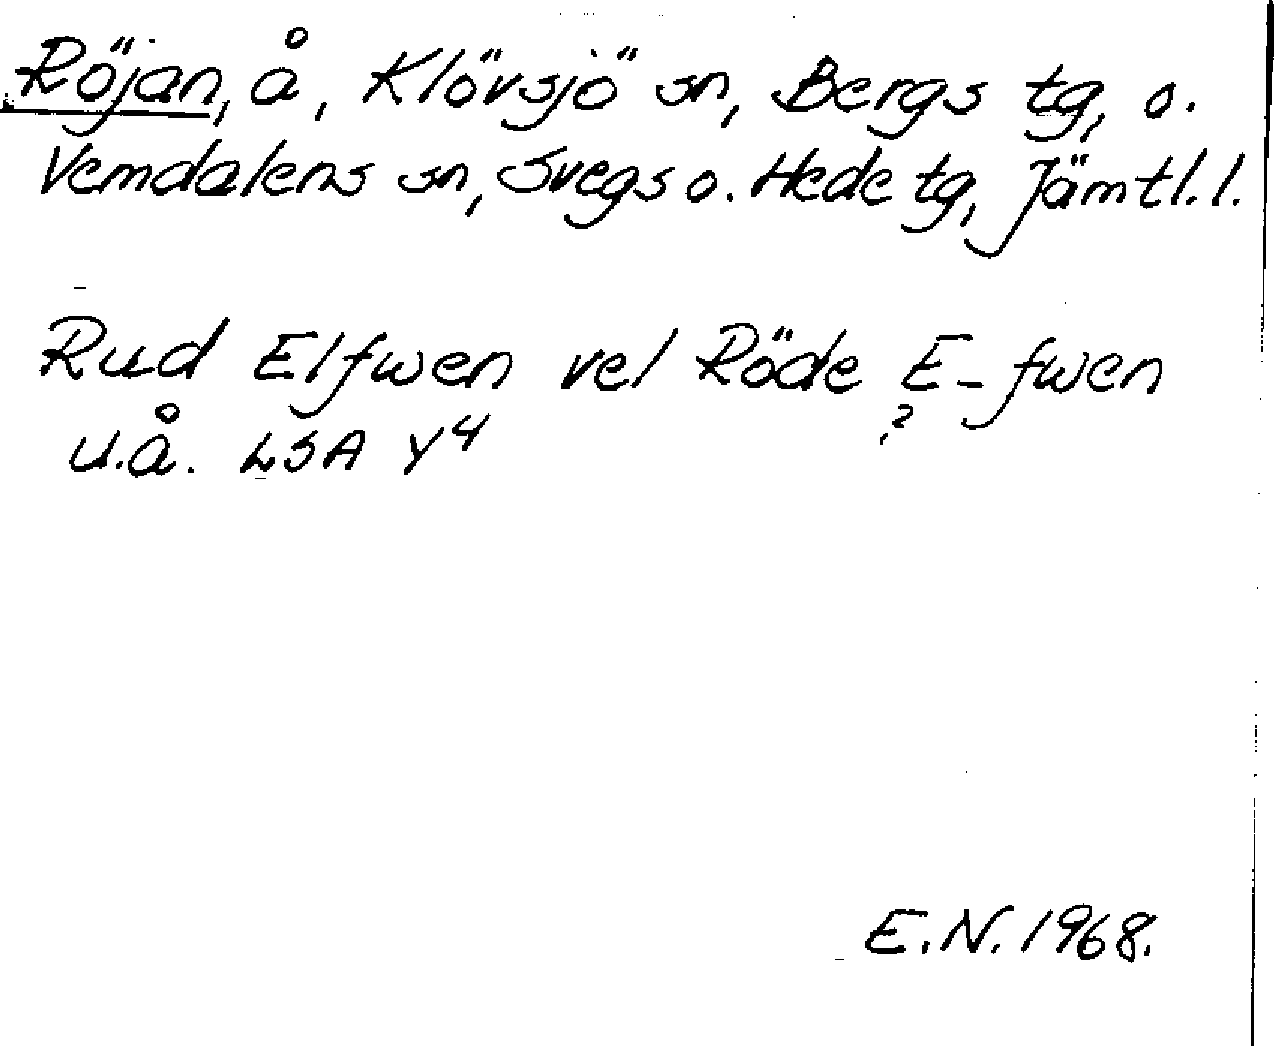 Röjan, å, Klövsjö sn, Bergs tg, o.
Vemdalens sn, Svegs o. Hede tg, Jämtl. l.
Rud Elfwen vel Röde E-fwen
?
u.å. LSA Y4
E.N. 1968.